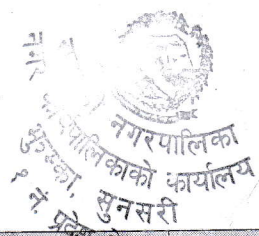 नगरपालिका
नगर कार्यपालिकाको कार्यालय
सुनसरी
१ नं. प्रदेश